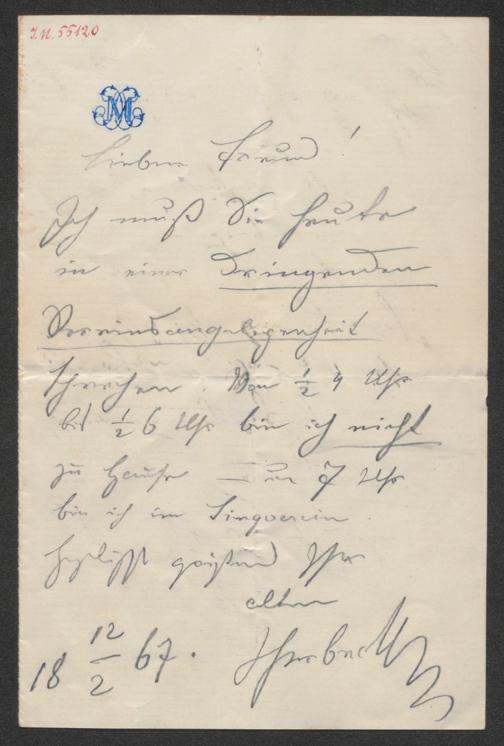 I.N. 55120
M
Lieber Freund!
Ich muß Sie heute
in einer dringenden
Vereinsangelegenheit
sprechen. Von ½ 4 Uhr
bis ½ 6 Uhr bin ich nicht
zu Hause – um 7 Uhr
bin ich im Singverein.
Herzlichst grüßend Ihr
alter
Herbeck
18 12/2 67.